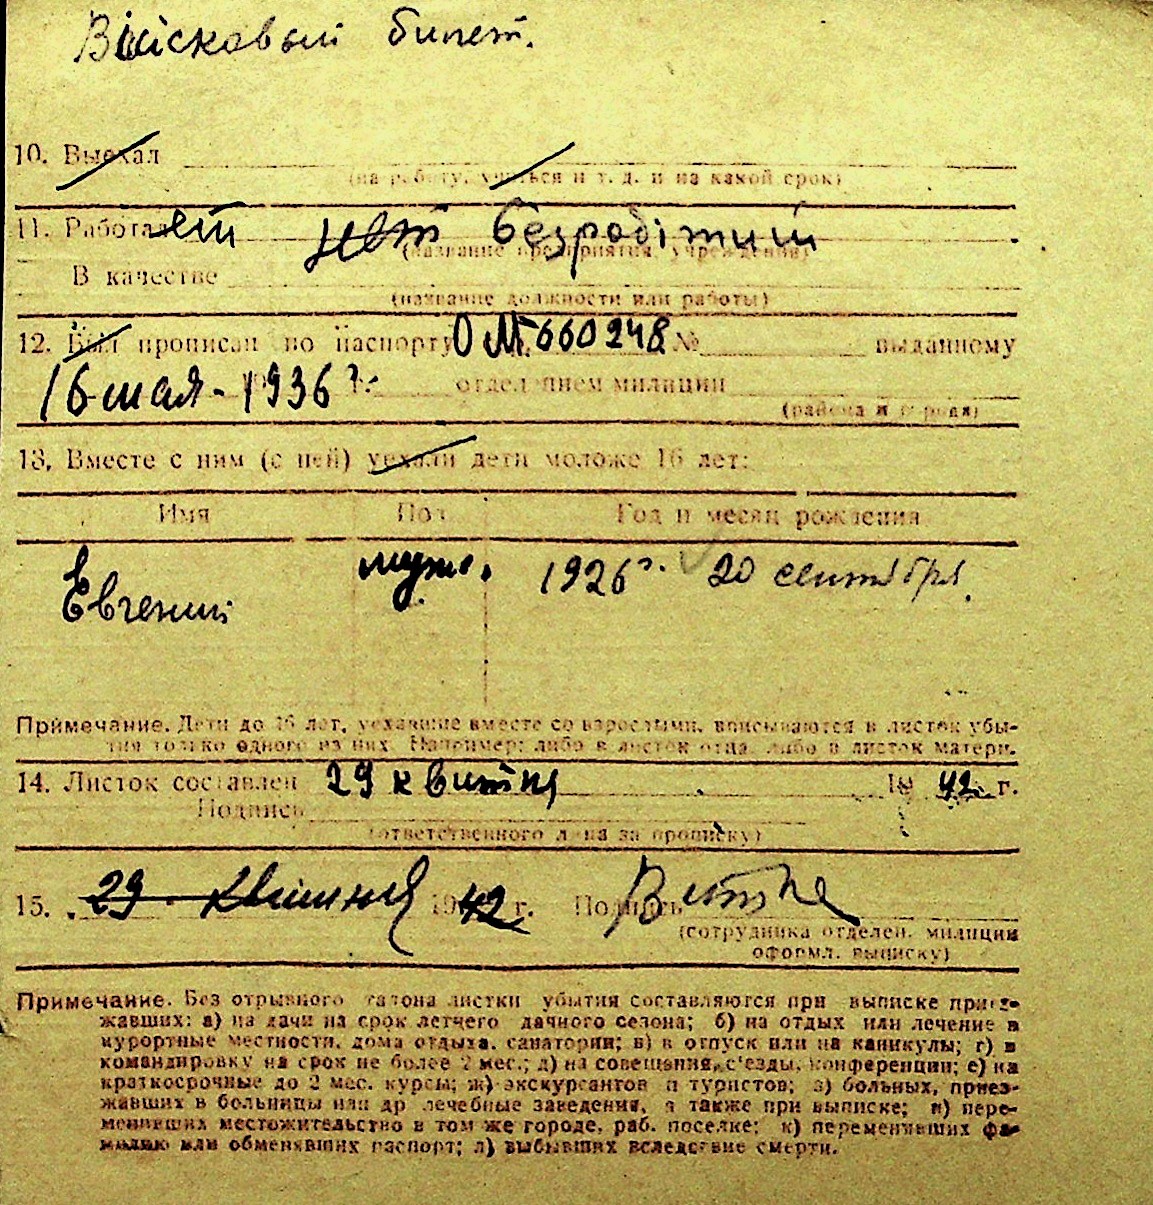 Військовый билет.
10. Выехал
(на работу, учиться и т. д. и на какой срок)
11. Работает нет безробітний
(название предприятия, учреждения)
В качестве
(название должности или работы)
12. Был прописан по паспорту ОМ 660248 № выданному
16 мая - 1936 г. отделением милиции
(района и города)
13. Вместе с ним (с ней) уехали дети моложе 16 лет:
Имя Пол Год и месяц рождения
Евгений муж. 1926 г. 20 сентября.
Примечание. Дети до 16 лет, уехавшие вместе со взрослыми, вписываются в листок убы-
тия только одного из них. Например: либо в листок отца, либо в листок матери.
14. Листок составлен 29 квитня 19 42 г.
Подпись
(ответственного лица за прописку)
15. 29 квитня 1942 г. Подпись
(сотрудника отделен. милиции
оформл. выписку)
Примечание. Без отрывного талона листки убытия составляются при выписке приез-
жавших: а) на дачи на срок летнего дачного сезона; б) на отдых или лечение в
курортные местности, дома отдыха, санатории; в) в отпуск или на каникулы; г) в
командировку на срок не более 2 мес.; д) на совещения, с'езды, конференции; е) на
краткосрочные до 2 мес. курсы; ж) экскурсантов и туристов; з) больных, приез-
жавших в больницы или др лечебные заведения, а также при выписке; и) пере-
менивших местожительство в том же городе, раб. поселке; к) переменивших фа-
милию или обменявших паспорт; л) выбывших вследствие смерти.